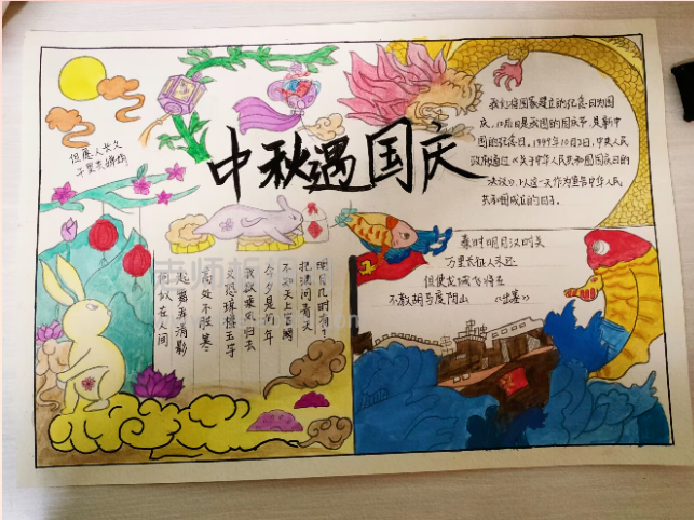 中秋遇国庆
但愿人长久
千里共婵娟
我们将国家建立的纪念日称为国
庆,10月1日是我国的国庆节,是新中
国的纪念日。1949年10月2日,中央人民
政府通过《关于中华人民共和国国庆日的
决议》,以这一天作为宣告中华人民
共和国成立的日子。
秦时明月汉时关
万里长征人未还
但使龙城飞将在
不教胡马度阴山 《出塞》
明月几时有?
把酒问青天
不知天上宫阙
今夕是何年
我欲乘风归去
又恐琼楼玉宇
高处不胜寒
起舞弄清影
何似在人间